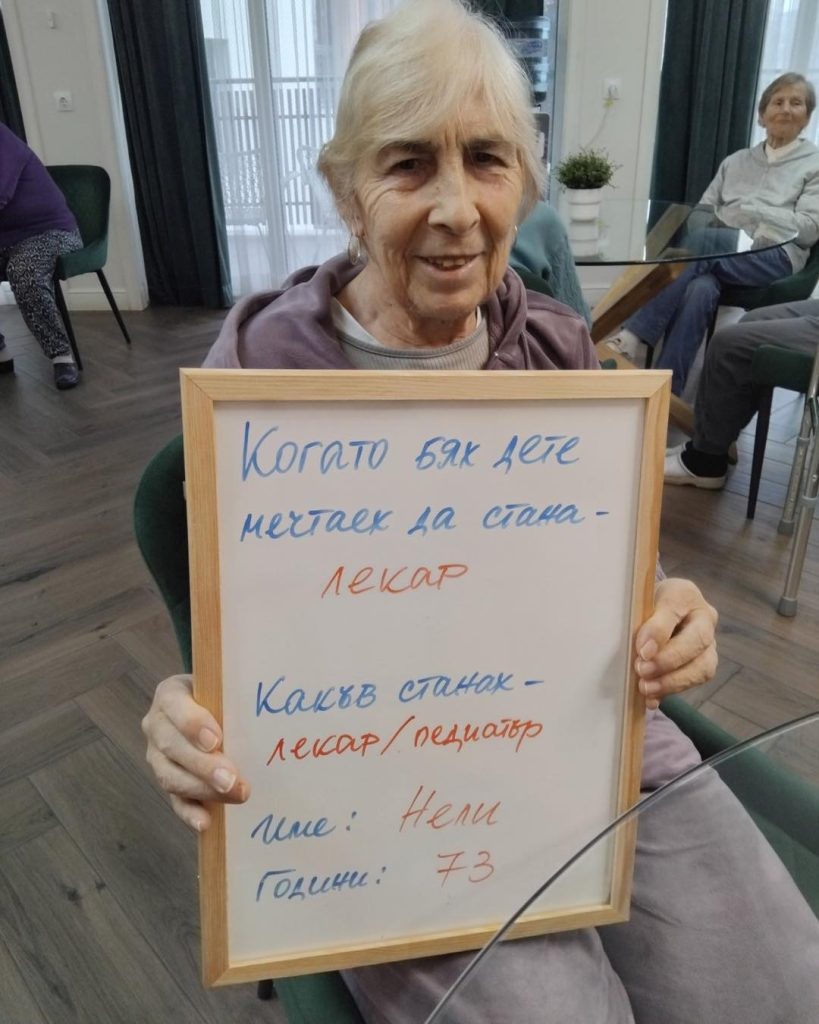 Когато бях дете
мечтаех да стана -
лекар
Какъв станах -
лекар/педиатър
Име: Нели
Години: 73